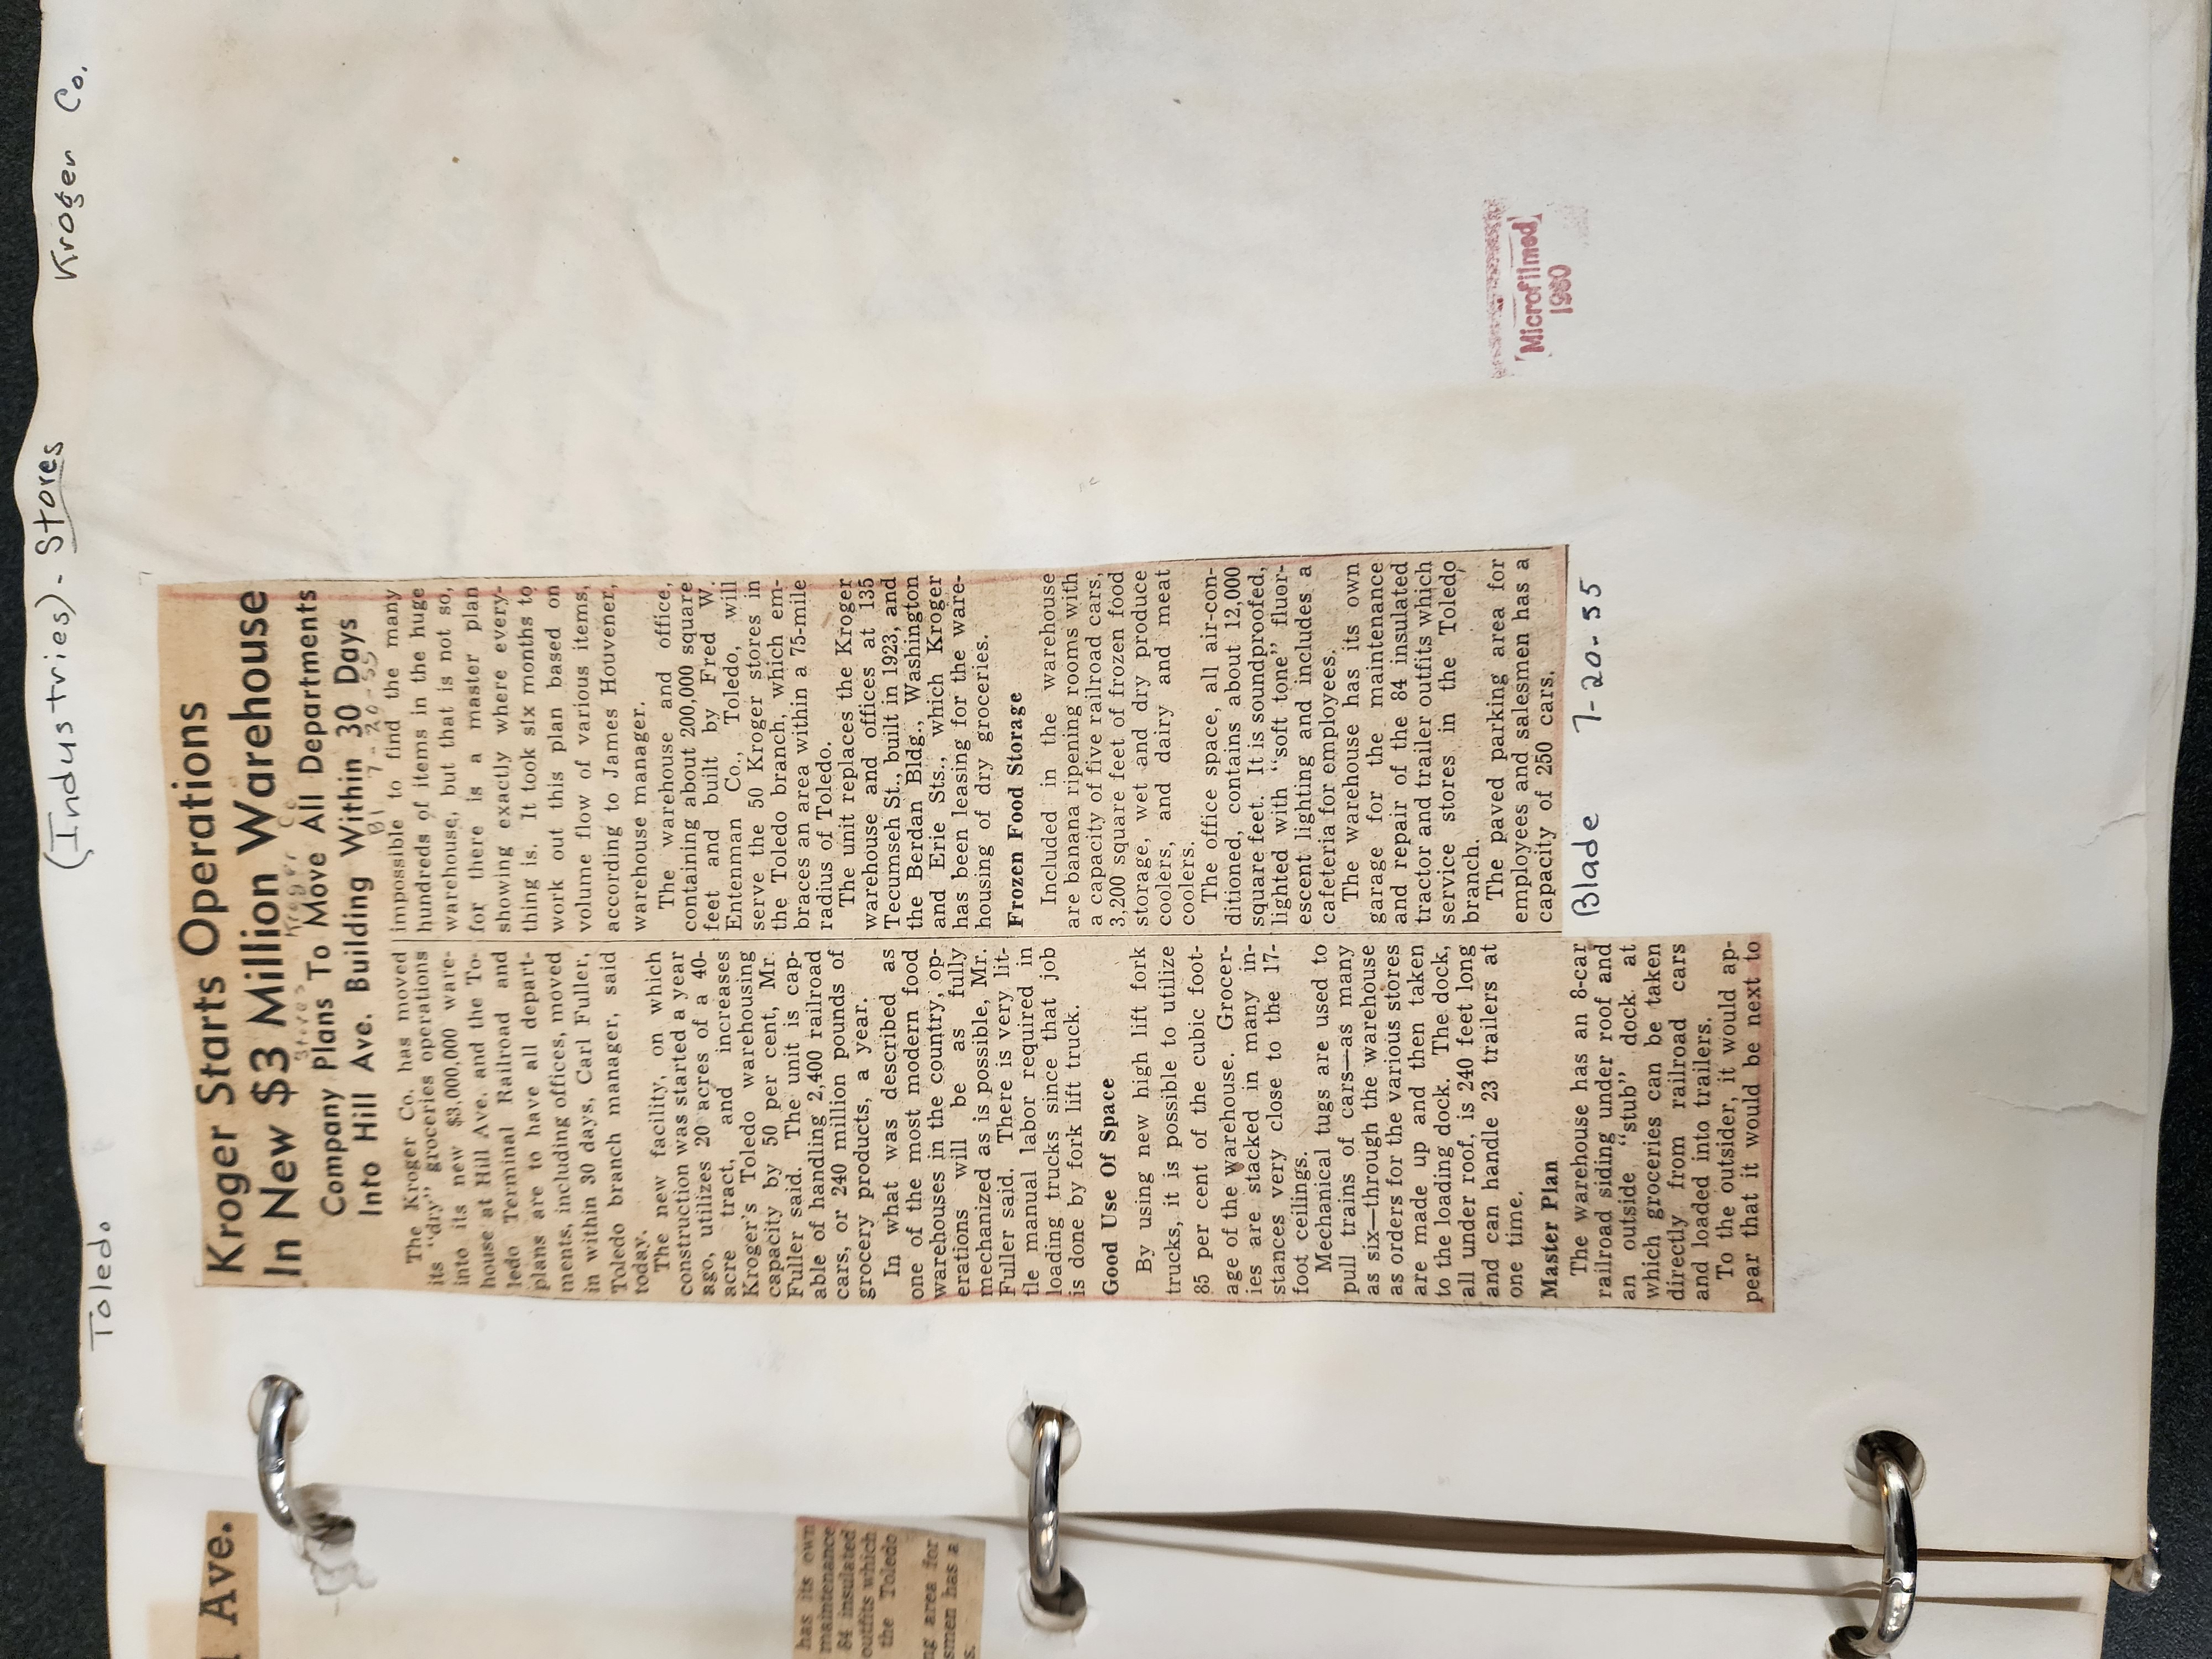 Toledo (Industries) - Stores Kroger Co.
Kroger Starts Operations
In New $3 Million Warehouse
Stores Kroger Co
Company Plans To Move All Departments
Bl 7-20-55
Into Hill Ave. Building Within 30 Days
The Kroger Co. has moved
its "dry" groceries operations
into its new $3,000,000 ware-
house at Hill Ave. and the To-
ledo Terminal Railroad and
plans are to have all depart-
ments, including offices, moved
in within 30 days, Carl Fuller,
Toledo branch manager, said
today.
The new facility, on which
construction was started a year
ago, utilizes 20 acres of a 40-
acre tract, and increases
Kroger's Toledo warehousing
capacity by 50 per cent, Mr.
Fuller said. The unit is cap-
able of handling 2,400 railroad
cars, or 240 million pounds of
grocery products, a year.
In what was described as
one of the most modern food
warehouses in the country, op-
erations will be as fully
mechanized as is possible, Mr.
Fuller said. There is very lit-
tle manual labor required in
loading trucks since that job
is done by fork lift truck.
Good Use Of Space
By using new high lift fork
trucks, it is possible to utilize
85 per cent of the cubic foot-
age of the warehouse. Grocer-
ies are stacked in many in-
stances very close to the 17-
foot ceilings.
Mechanical tugs are used to
pull trains of cars—as many
as six—through the warehouse
as orders for the various stores
are made up and then taken
to the loading dock. The dock,
all under roof, is 240 feet long
and can handle 23 trailers at
one time.
Master Plan
The warehouse has an 8-car
railroad siding under roof and
an outside "stub" dock at
which groceries can be taken
directly from railroad cars
and loaded into trailers.
To the outsider, it would ap-
pear that it would be next to
impossible to find the many
hundreds of items in the huge
warehouse, but that is not so,
for there is a master plan
showing exactly where every-
thing is. It took six months to
work out this plan based on
volume flow of various items,
according to James Houvener,
warehouse manager.
The warehouse and office,
containing about 200,000 square
feet and built by Fred W.
Entenman Co., Toledo, will
serve the 50 Kroger stores in
the Toledo branch, which em-
braces an area within a 75-mile
radius of Toledo.
The unit replaces the Kroger
warehouse and offices at 135
Tecumseh St., built in 1923, and
the Berdan Bldg., Washington
and Erie Sts., which Kroger
has been leasing for the ware-
housing of dry groceries.
Frozen Food Storage
Included in the warehouse
are banana ripening rooms with
a capacity of five railroad cars,
3,200 square feet of frozen food
storage, wet and dry produce
coolers, and dairy and meat
coolers.
The office space, all air-con-
ditioned, contains about 12,000
square feet. It is soundproofed,
lighted with "soft tone" fluor-
escent lighting and includes a
cafeteria for employees.
The warehouse has its own
garage for the maintenance
and repair of the 84 insulated
tractor and trailer outfits which
service stores in the Toledo
branch.
The paved parking area for
employees and salesmen has a
capacity of 250 cars.
Blade 7-20-55
Microfilmed
1980
Ave.
has its own
maintenance
84 insulated
outfits which
the Toledo
ng area for
smen has a
s.